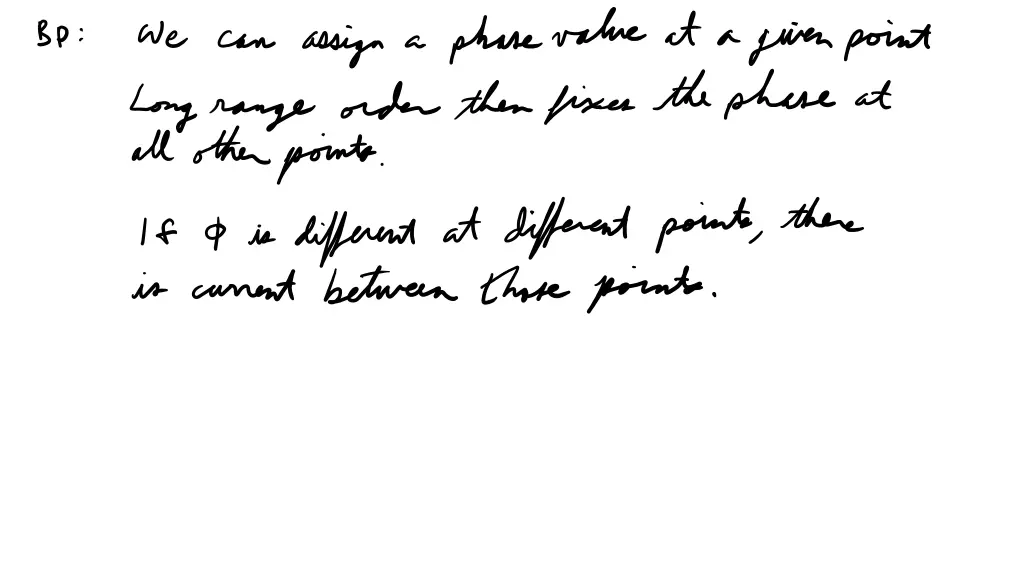 BP: We can assign a phase value at a given point
Long range order then fixes the phase at
all other points.
If ϕ is different at different points, there
is current between those points.